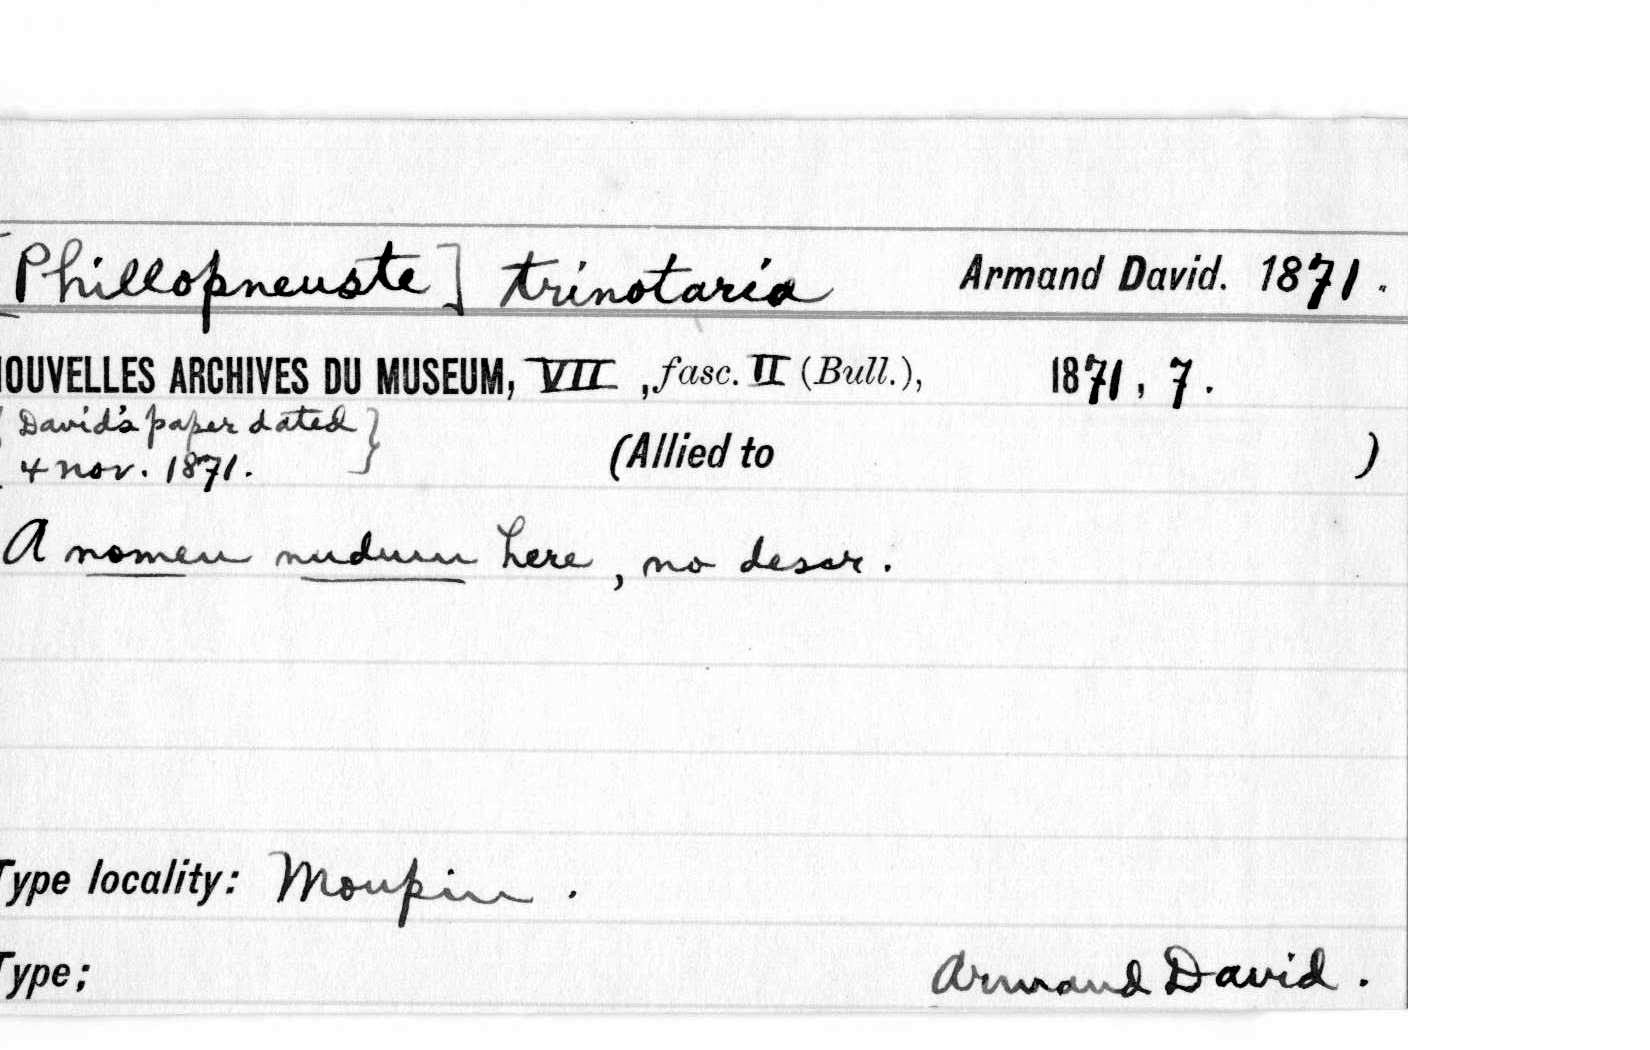 [Phillopneuste] trinotaria Armand David. 1871.
NOUVELLES ARCHIVES DU MUSEUM, VII, fasc. II (Bull.), 1871, 7.
{David's paper dated
4 nov. 1871.}
(Allied to )
A nomen nudum here, no descr.
Type locality: Moupin.
Type; Armand David.